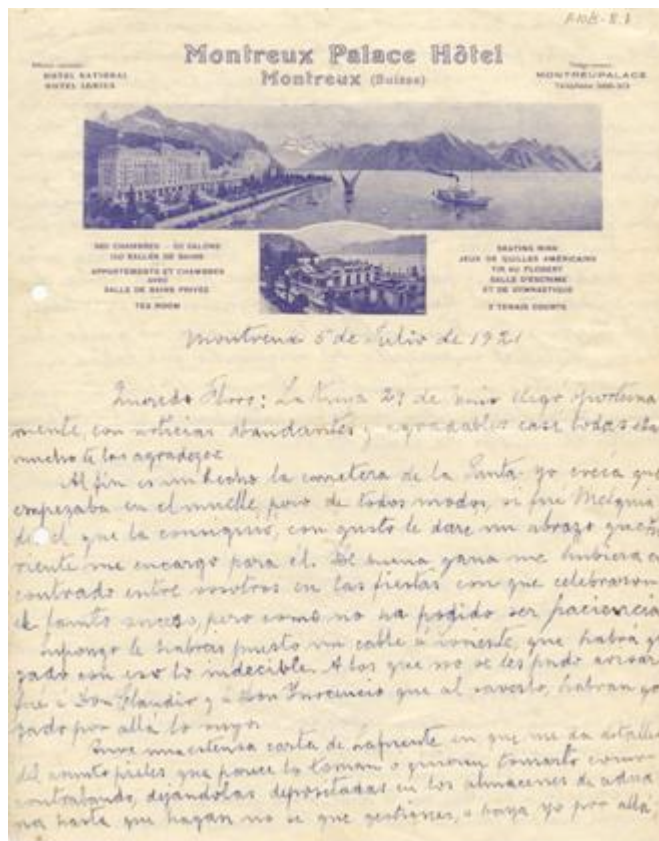 Montreux Palace Hôtel
Montreux (Suisse)
HOTEL NATIONAL
MONTREUPALACE
SALONS
SALLES DE BAINS
APPARTEMENTS ET CHAMBRES
AVEC
SALLE DE BAINS PRIVÉE
TEA ROOM
SKATING RINK
JEUX DE QUILLES AMÉRICAINS
TIR AU FLOBERT
SALLE D'ESCRIME
ET DE GYMNASTIQUE
TENNIS COURTS
Montreux 5 de Julio de 1921
Querido : La tuya 29 de llegó oportuna
mente, con noticias abundantes y agradables casi todas
mucho te las agradezco
Al fin es un hecho la carretera de la Punta yo creía que
empezaba en el muelle pero de todos modos, si fué
el que la consiguió, con gusto le daré un abrazo
me encargo para él. De buena gana me hubiera en
contrado entre vosotros en las fiestas con que celebraron
el fausto suceso, pero como no ha podido ser paciencia
Supongo le habrás puesto un cable á que habrá go
zado con eso lo indecible. A los que no se les pudo avisar
fué á Don Claudio y á Don Inocencio que al saverlo, habran go
zado por allá lo suyo.
Tuve una extensa carta de Lafuente en que me da detalles
del asunto pieles que parece lo toman o quieren tomarlo como
contrabando, dejándolas depositadas en los almacenes de adua
na hasta que hagan no se que gestiones, o vaya yo por allá